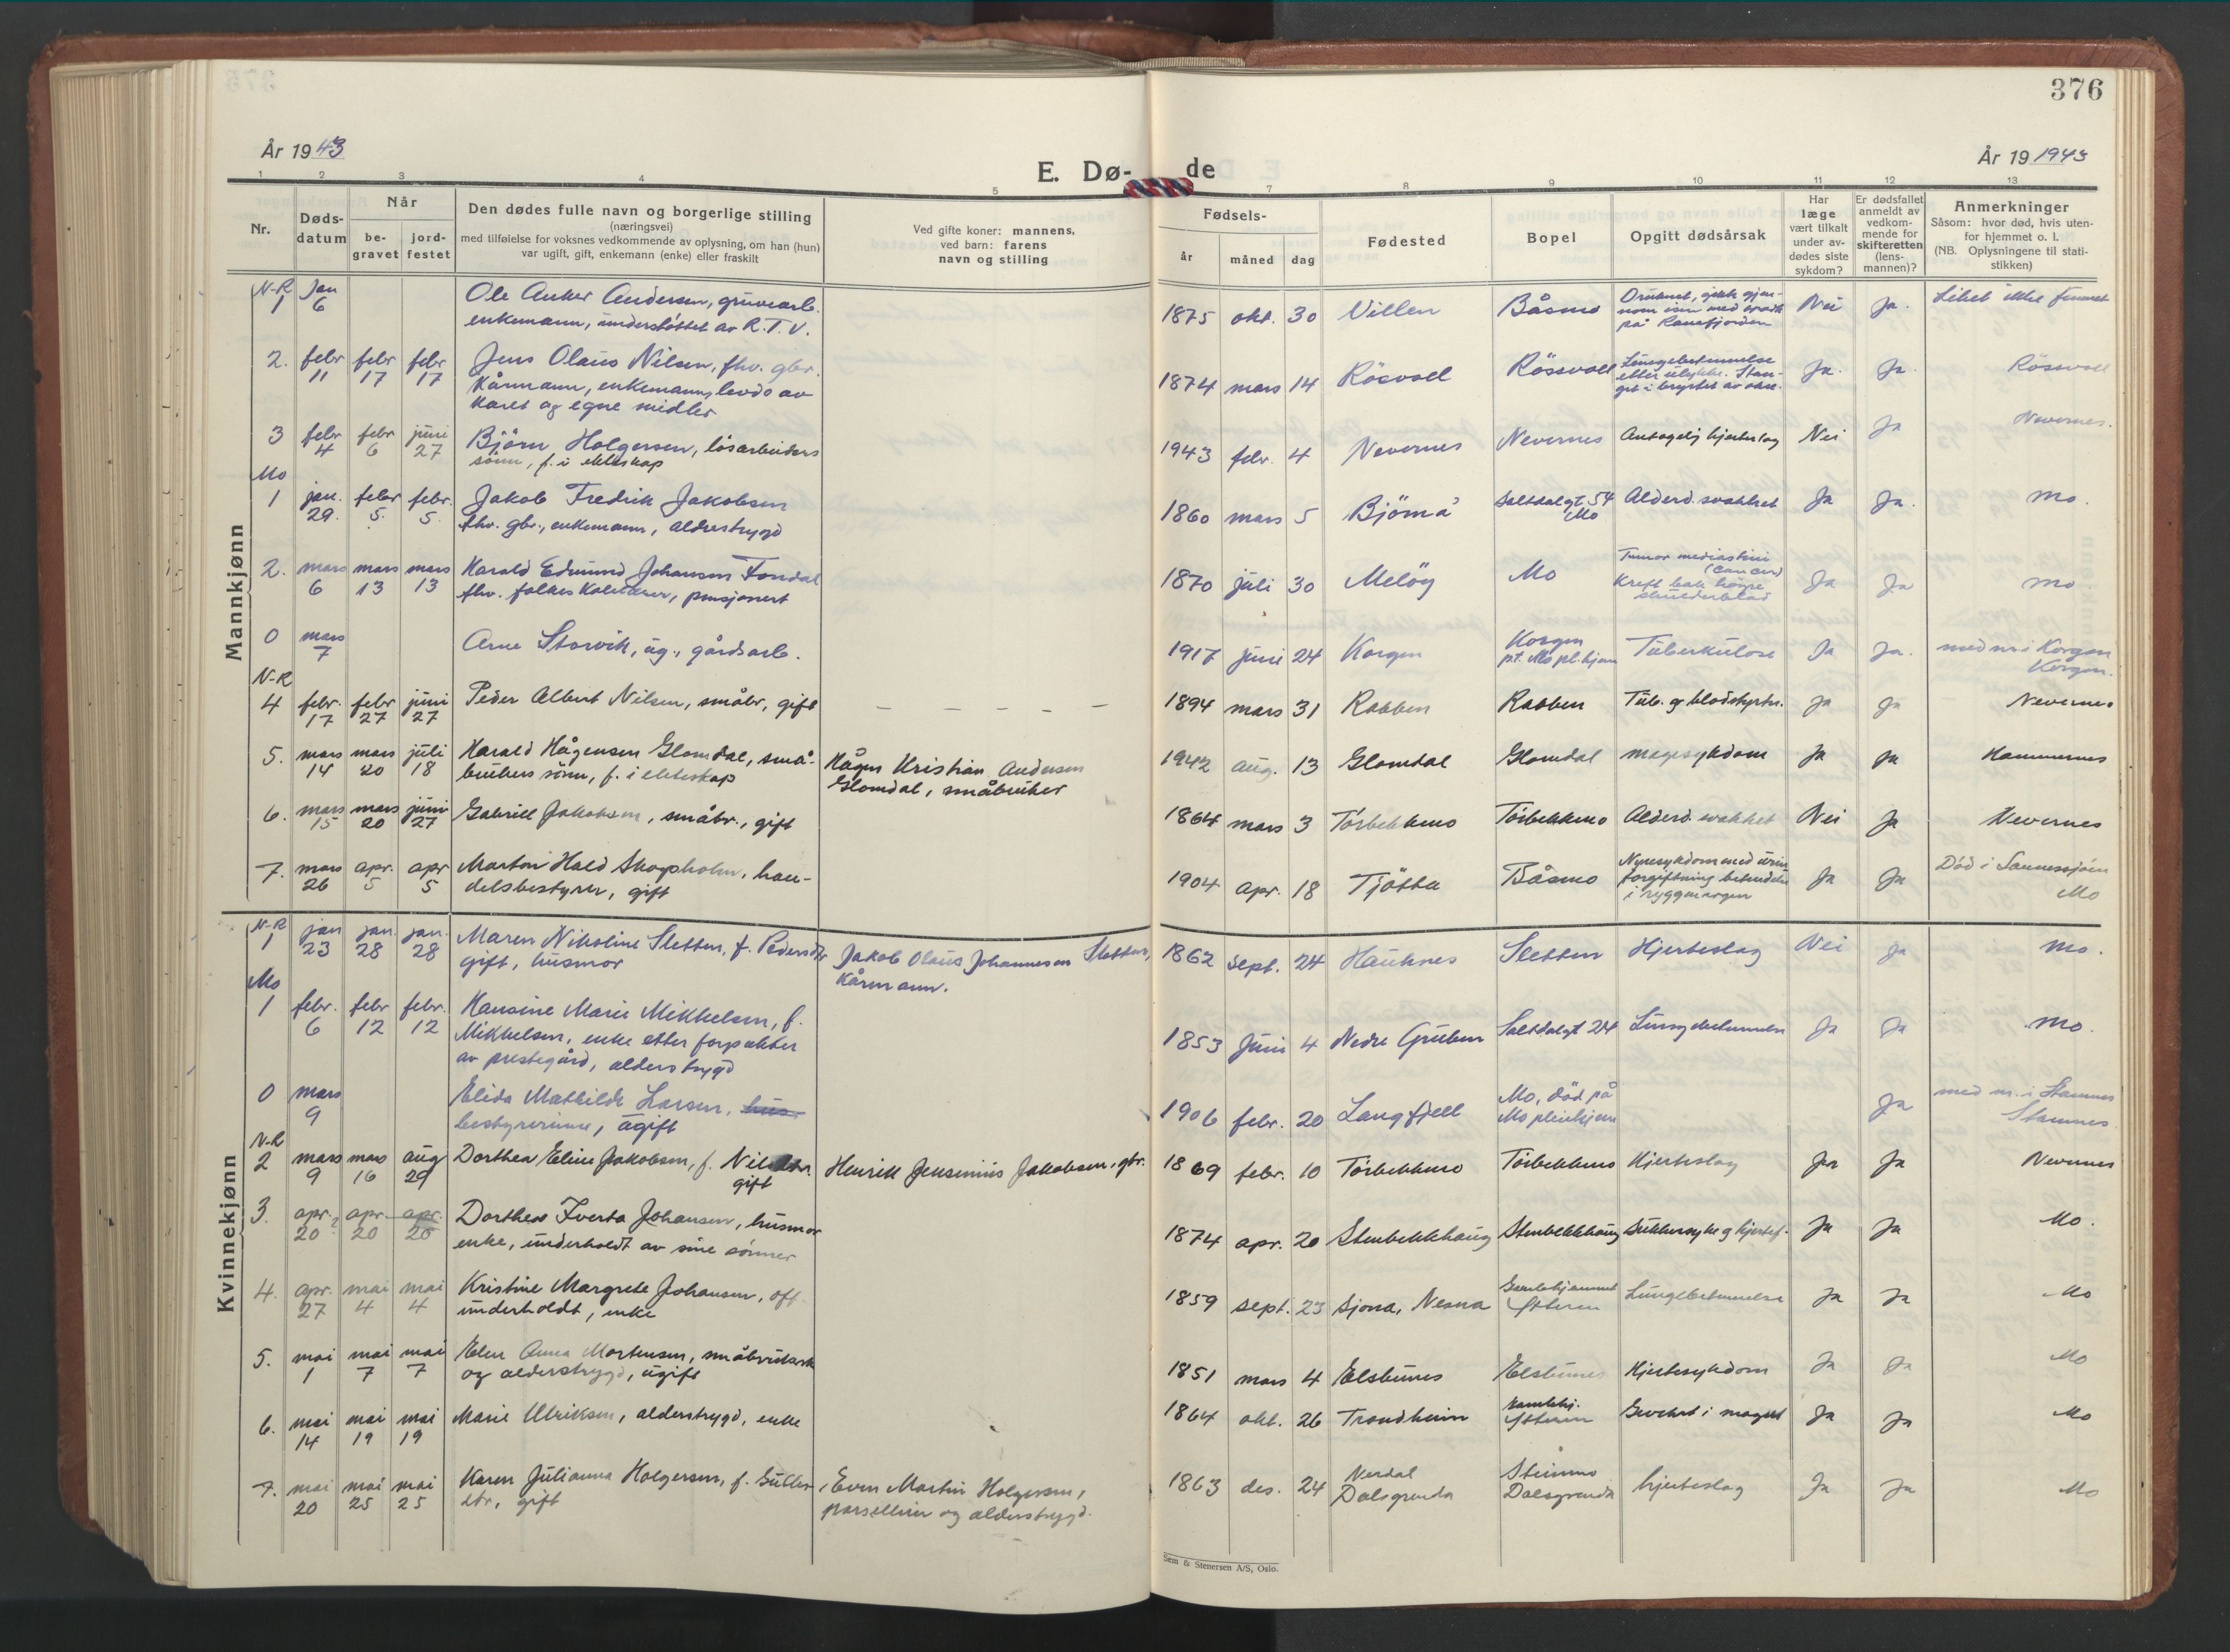 376
År 1943
År 19 1943
E. Dø- de
1 2 3 4 5 7 8 9 10 11 12 13
Nr.
Døds-
datum
Når
be-
gravet
jord-
festet
Den dødes fulle navn og borgerlige stilling
(næringsvei)
med tilføielse for voksnes vedkommende av oplysning, om han (hun)
var ugift, gift, enkemann (enke) eller fraskilt
Ved gifte koner: mannens,
ved barn: farens
navn og stilling
Fødsels-
år måned dag
Fødested
Bopel
Opgitt dødsårsak
Har
læge
vært tilkalt
under av-
dødes siste
sykdom?
Er dødsfallet
anmeldt av
vedkom-
mende for
skifteretten
(lens-
mannen)?
Anmerkninger
Såsom: hvor død, hvis uten-
for hjemmet o. l.
(NB. Oplysningene til stati-
stikken)
Mannkjønn
N-R
1 jan 6 Ole Anker Andersen, gruvearb.
enkemann, understøttet av R.T.V.
1875 okt. 30 Villen Båsmo Druknet, gikk gjen-
nom isen med
på Ranafjorden Nei Ja. Liket ikke funnet
2. febr 11 febr 17 febr 17 Jens Olaus Nilsen, fhv. gbr.
Kårmann, enkemann, levde av
Karet og egne midler
1874 mars 14 Rösvoll Rössvoll Lungebetennelse
etter ulykke. Stan-
get i brystet av okse. Ja. Ja. Rössvoll
3 febr 4 febr 6 juni 27 Björn Holgersen, lösarbeiders
sönn, f. i ekteskap
1943 febr. 4 Nevernes Nevernes Antagelig hjerteslag Nei Ja Nevernes.
Mo
1 jan. 29. febr 5. febr. 5 Jakob Fredrik Jakobsen
fhv. gbr., enkemann, alderstrygd
1860 mars 5 Björnå Saltdalgt. 54
Mo Alderd.svakhet Ja Ja. Mo.
2. mars 6 mars 13 mars 13 Harald Edmund Johansen Fondal
fhv. pensjonert
1870 juli 30 Melöy Mo Tumor mediastini
(Cancer)
Kreft bak högre
skulderblad Ja Ja Mo
0 mars 7 Arne Storvik, ug., gårdsarb.
1917 juni 24 Korgen Korgen
pt. Mo pl.hjem Tuberkulose Ja Ja. med nr. i Korgen
Korgen.
N-R
4 febr. 17 febr 27 juni 27 Peder Albert Nilsen, småbr, gift – – – – –
1894 mars 31 Rabben Rabben Tub. og blodstyrtn. Ja Ja Nevernes
5. mars 14 mars 20 juli 18 Harald Hågensen Glomdal, små-
brukers sönn, f. i ekteskap Hågen Kristian Andersen
Glomdal, småbruker
1942 aug. 13 Glomdal Glomdal magesykdom Ja Ja Hammernes
6. mars 15 mars 20 juni 27 Gabriell Jakobsen, småbr., gift
1864 mars 3 Törbekkmo Törbekkmo Alderd.svakhet Nei Ja Nevernes
7. mars 26 apr. 5 apr 5 Martin Hald Skogsholm, han-
delsbestyrer, gift
1904 apr. 18 Tjötta Båsmo Nyresykdom med urin
forgiftning betendelse
i ryggmargen Ja Ja Död i Sannessjöen
Mo
Kvinnekjønn
N-R
1 jan 23 jan. 28 jan. 28 Maren Nikoline Sletten, f. Pedersdtr
gift, husmor Jakob Olaus Johannesen Sletten,
Kårmann.
1862 sept. 24 Hauknes Sletten Hjerteslag Nei Ja Mo.
Mo
1 febr. 6 febr 12 febr. 12 Hansine Marie Mikkelsen, f.
Mikkelsen, enke etter forpakter
av prestegård, alderstrygd
1853 Juni 4 Nedre Gruben Saltdalgt 24 Lungebetennelse Ja Ja Mo.
0 mars 9 Elida Mathilde Larsen, hus-
bestyrerinne, ugift
1906 febr. 20 Langfjell Mo, död på
Mo pleiehjem Ja med nr. i Stamnes
Stamnes
N-R
2 mars 9 mars 16 aug 29 Dorthea Eline Jakobsen, f. Nilsdtr.
gift Henrik Jensenius Jakobsen, gbr.
1869 febr. 10 Törbekkmo Törbekkmo Hjerteslag Ja Ja Nevernes
3. apr. 20 apr. 20 apr. 20 Dorthea Iverta Johansen, husmor
enke, underholdt av sine sönner
1874 apr. 20 Stenbekkhaug Stenbekkhaug Sukkersyke og hjertef. Ja Ja Mo.
4. apr. 27 mai 4 mai 4 Kristine Margrete Johansen, off.
underholdt, enke
1859 sept. 23 Sjona, Nesna Gamlehjemmet
Ytteren Lungebetennelse Ja Ja Mo
5. mai 1 mai 7 mai 7 Elen Anna Mortensen, småbrukersk
og alderstrygd, ugift
1851 mars 4 Elsbunes Elsbunes Hjertesykdom Ja Ja Mo
6. mai 14 mai 19 mai 19 Marie Ulriksen, alderstrygd, enke
1864 okt. 26 Trondheim Gamlehj.
Ytteren Svekket i maget Ja Ja Mo
7. mai 20 mai 25 mai 25 Karen Julianna Holgersen, f.
dtr, gift Even Martin Holgersen,
parsellier og alderstrygd.
1863 des. 24 Nerdal
Dalsgrenda Steinmo
Dalsgrenda hjerteslag Ja Ja Mo
Sem & Stenersen A/S, Oslo.